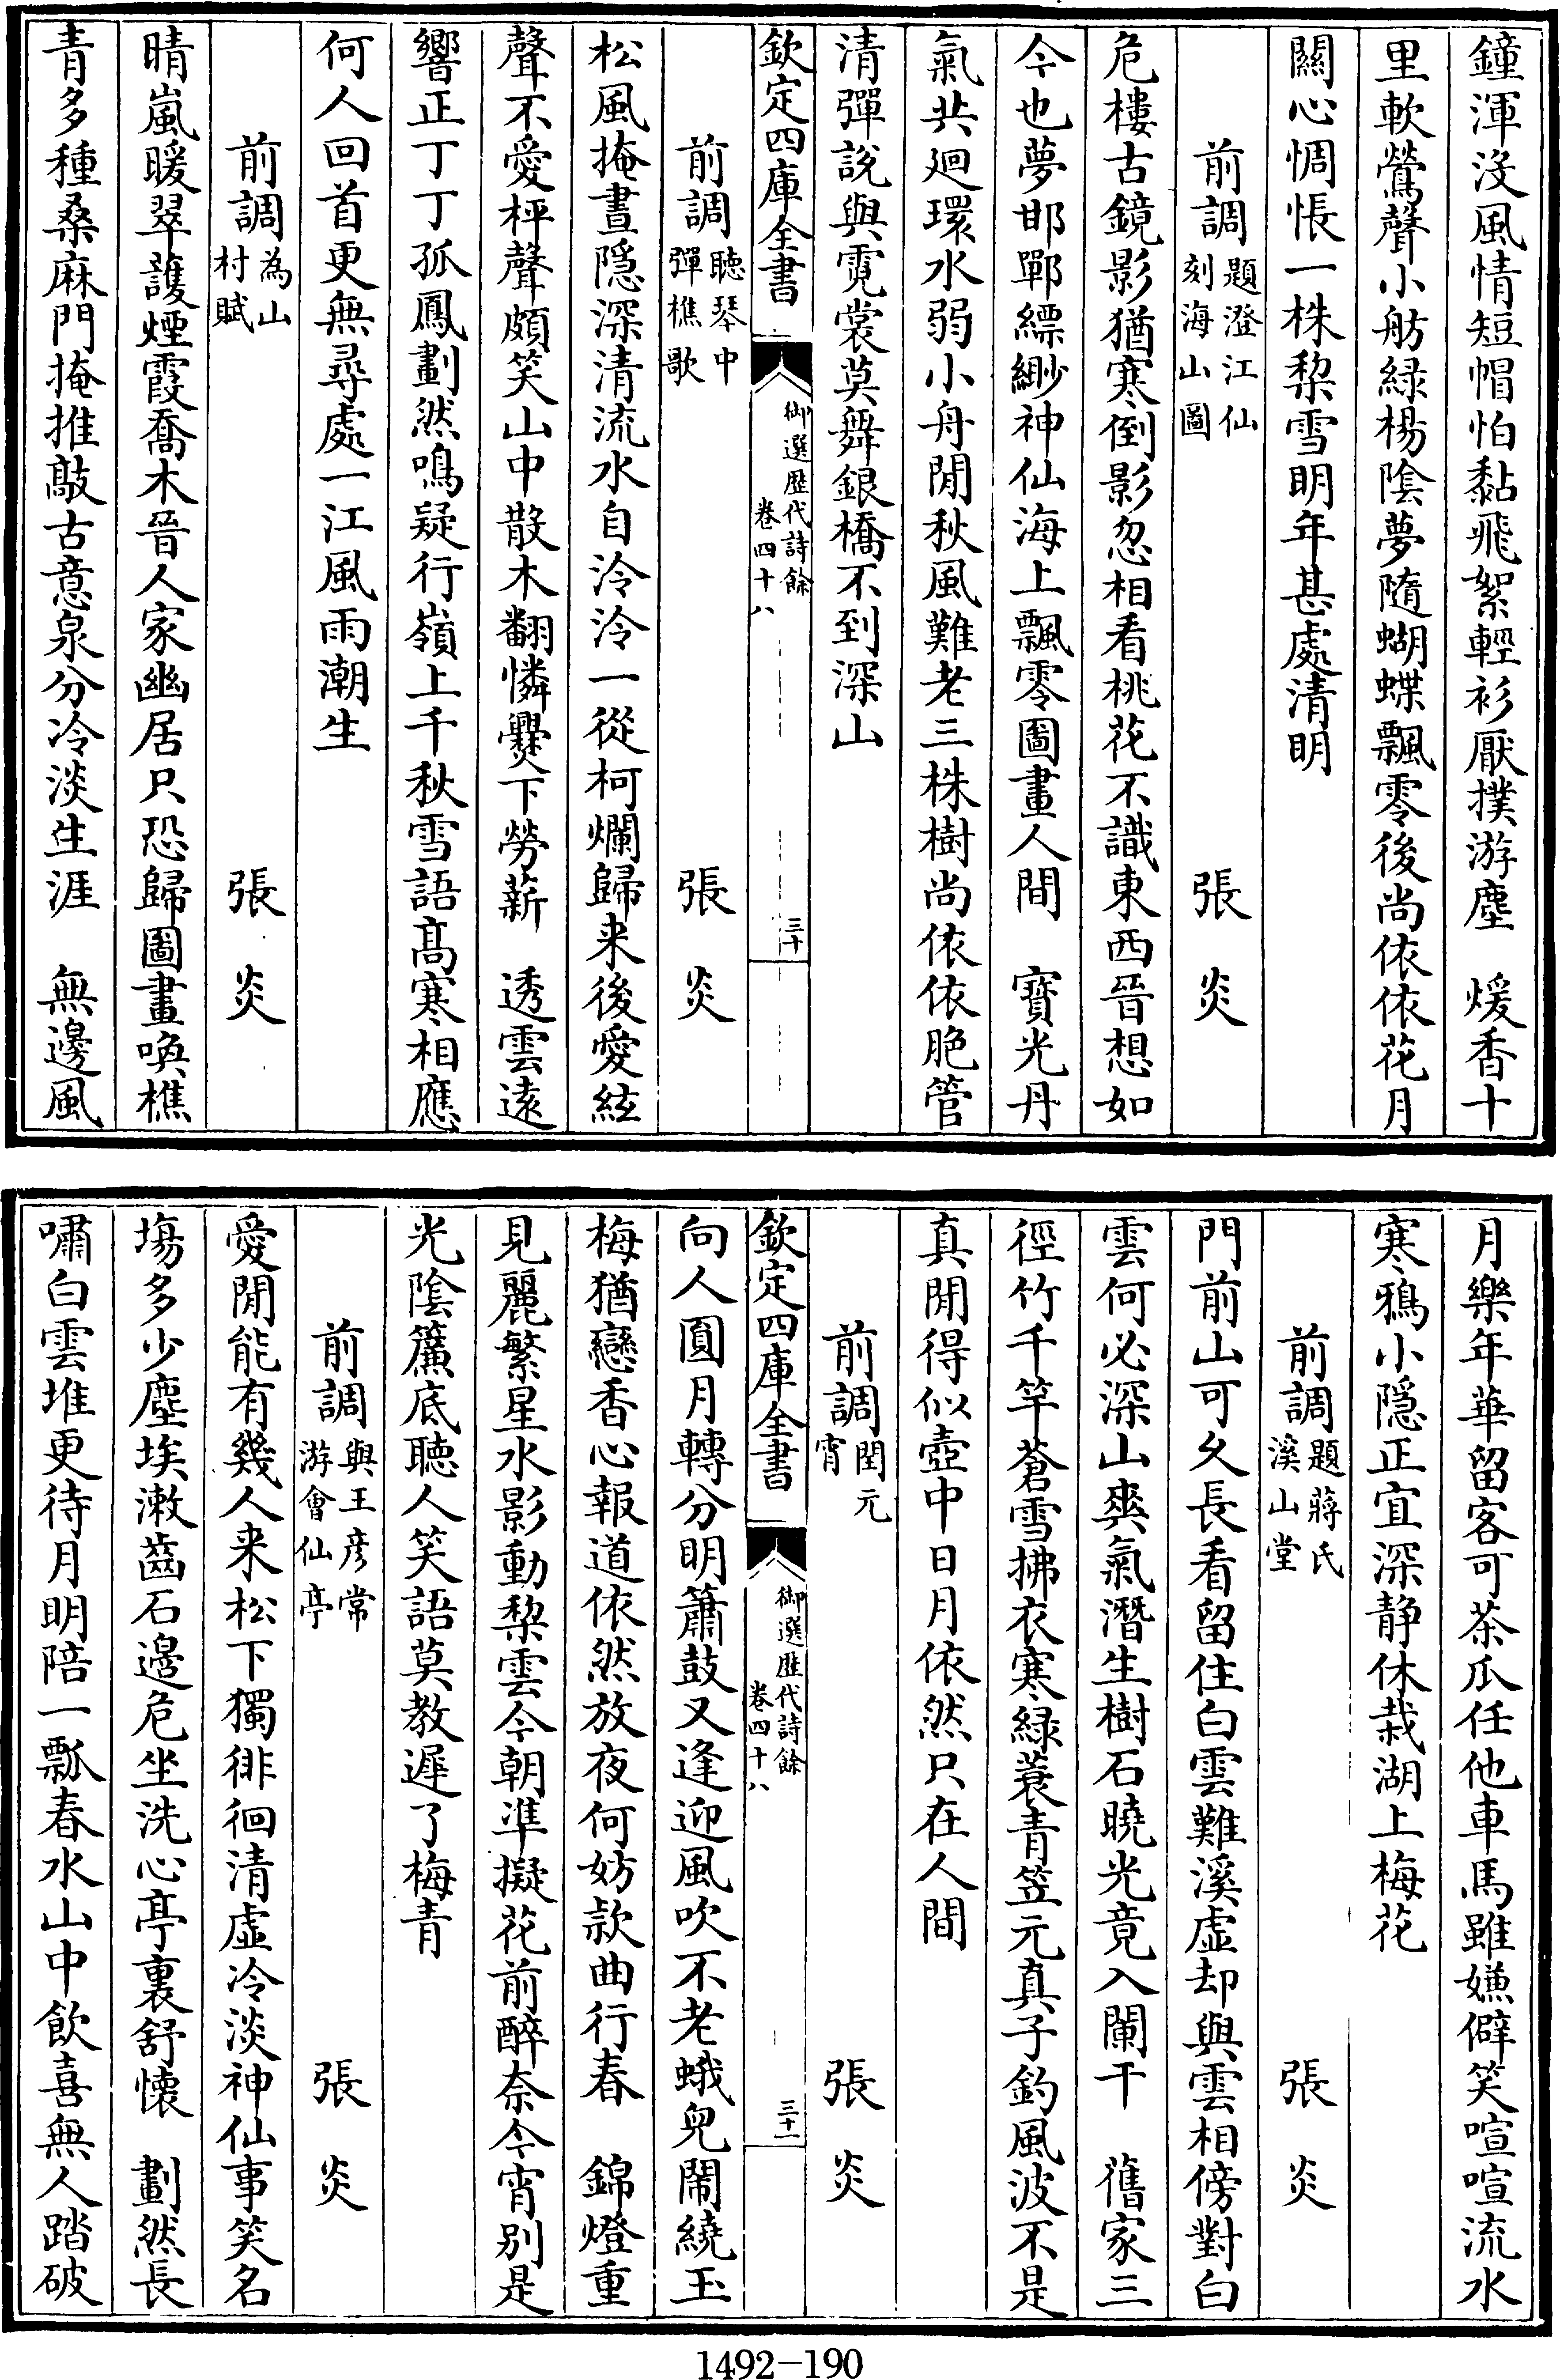 鐘渾沒風情短帽怕黏飛絮輕衫厭撲游塵　煖香十
里軟鶯聲小舫緑楊陰夢隨蝴蝶飄零後尚依依花月
關心惆悵一株梨雪明年甚處清明
前調題澄江仙刻海山圖　張炎
危樓古鏡影猶寒倒影忽相看桃花不識東西晉想如
今也夢邯鄲縹緲神仙海上飄零圖畫人間　寶光丹
氣共廻環水弱小舟閒秋風難老三株樹尚依依脆管
清彈說與霓裳莫舞銀橋不到深山
欽定四庫全書　御選歷代詩餘卷四十八　三十
前調聽琴中彈樵歌　張炎
松風掩晝隱深清流水自泠泠一從柯爛歸来後愛絃
聲不愛枰聲頗笑山中散木翻憐爨下勞薪　透雲遠
響正丁丁孤鳳劃然鳴疑行嶺上千秋雪語髙寒相應
何人回首更無尋處一江風雨潮生
前調為山村賦　張炎
晴嵐暖翠護煙霞喬木晉人家幽居只恐歸圖畫喚樵
青多種桑麻門掩推敲古意泉分冷淡生涯　無邊風
月樂年華留客可茶瓜任他車馬雖嫌僻笑喧喧流水
寒鴉小隱正宜深静休栽湖上梅花
前調題蔣氏溪山堂　張炎
門前山可久長看留住白雲難溪虛却與雲相傍對白
雲何必深山爽氣潛生樹石曉光竟入闌干　舊家三
徑竹千竿蒼雪拂衣寒緑蓑青笠元真子釣風波不是
真閒得似壺中日月依然只在人間
前調閏元宵　張炎
欽定四庫全書　御選歷代詩餘卷四十八　三十一
向人圓月轉分明簫鼓又逢迎風吹不老蛾兒鬧繞玉
梅猶戀香心報道依然放夜何妨款曲行春　錦燈重
見麗繁星水影動梨雲今朝準擬花前醉奈今宵别是
光陰簾底聽人笑語莫教遲了梅青
前調與王彦常游會仙亭　張炎
愛閒能有幾人来松下獨徘徊清虛冷淡神仙事笑名
塲多少塵埃漱齒石邊危坐洗心亭裏舒懷　劃然長
嘯白雲堆更待月明陪一瓢春水山中飲喜無人踏破
1492-190